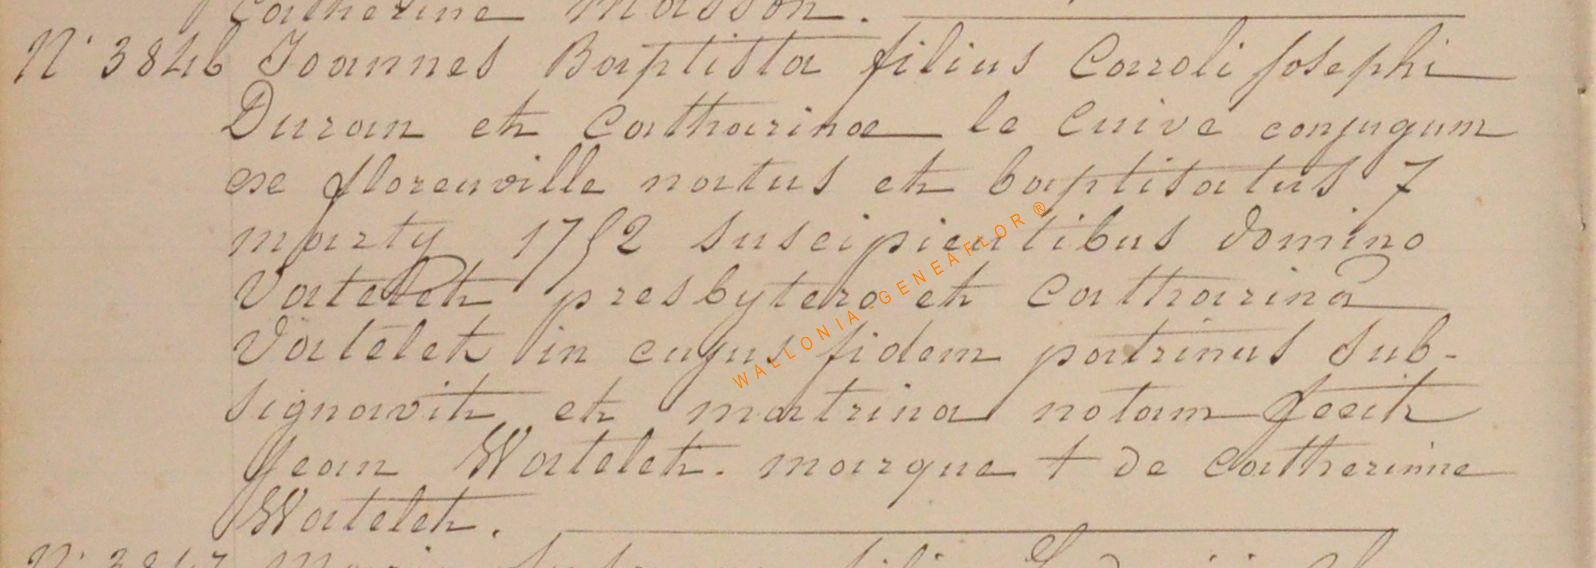 Catherine Masson.
N° 3846 Joannes Baptista filius Caroli Josephi
Duran et Catharinae le Cuive conjugum
ex florenville natus et baptisatus 7
marty 1752 suscipientibus domino
Vatelet presbytero et Catharina
Vatelet in cujus fidem patrinus sub-
signavit et matrina notam fecit
Jean Watelet. marque + de Catherinne
Watelet.
N° 3847 Maria
WALLONIA-GENEAFLOR ®